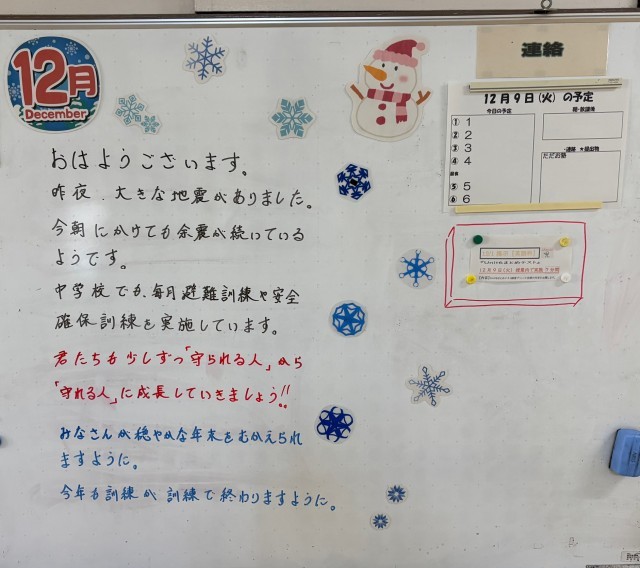 12月
December
連絡
12月9日(火) の予定
今日の予定
① 1
② 2
③ 3
④ 4
⑤ 5
⑥ 6
ただお塾
おはようございます。
昨夜、大きな地震がありました。
今朝にかけても余震が続いている
ようです。
中学校でも、毎月避難訓練や安全
確保訓練を実施しています。
君たちも少しずつ「守られる人」から
「守れる人」に成長していきましょう!!
みなさんが穏やかな年末をむかえられ
ますように。
今年も訓練が訓練で終わりますように。